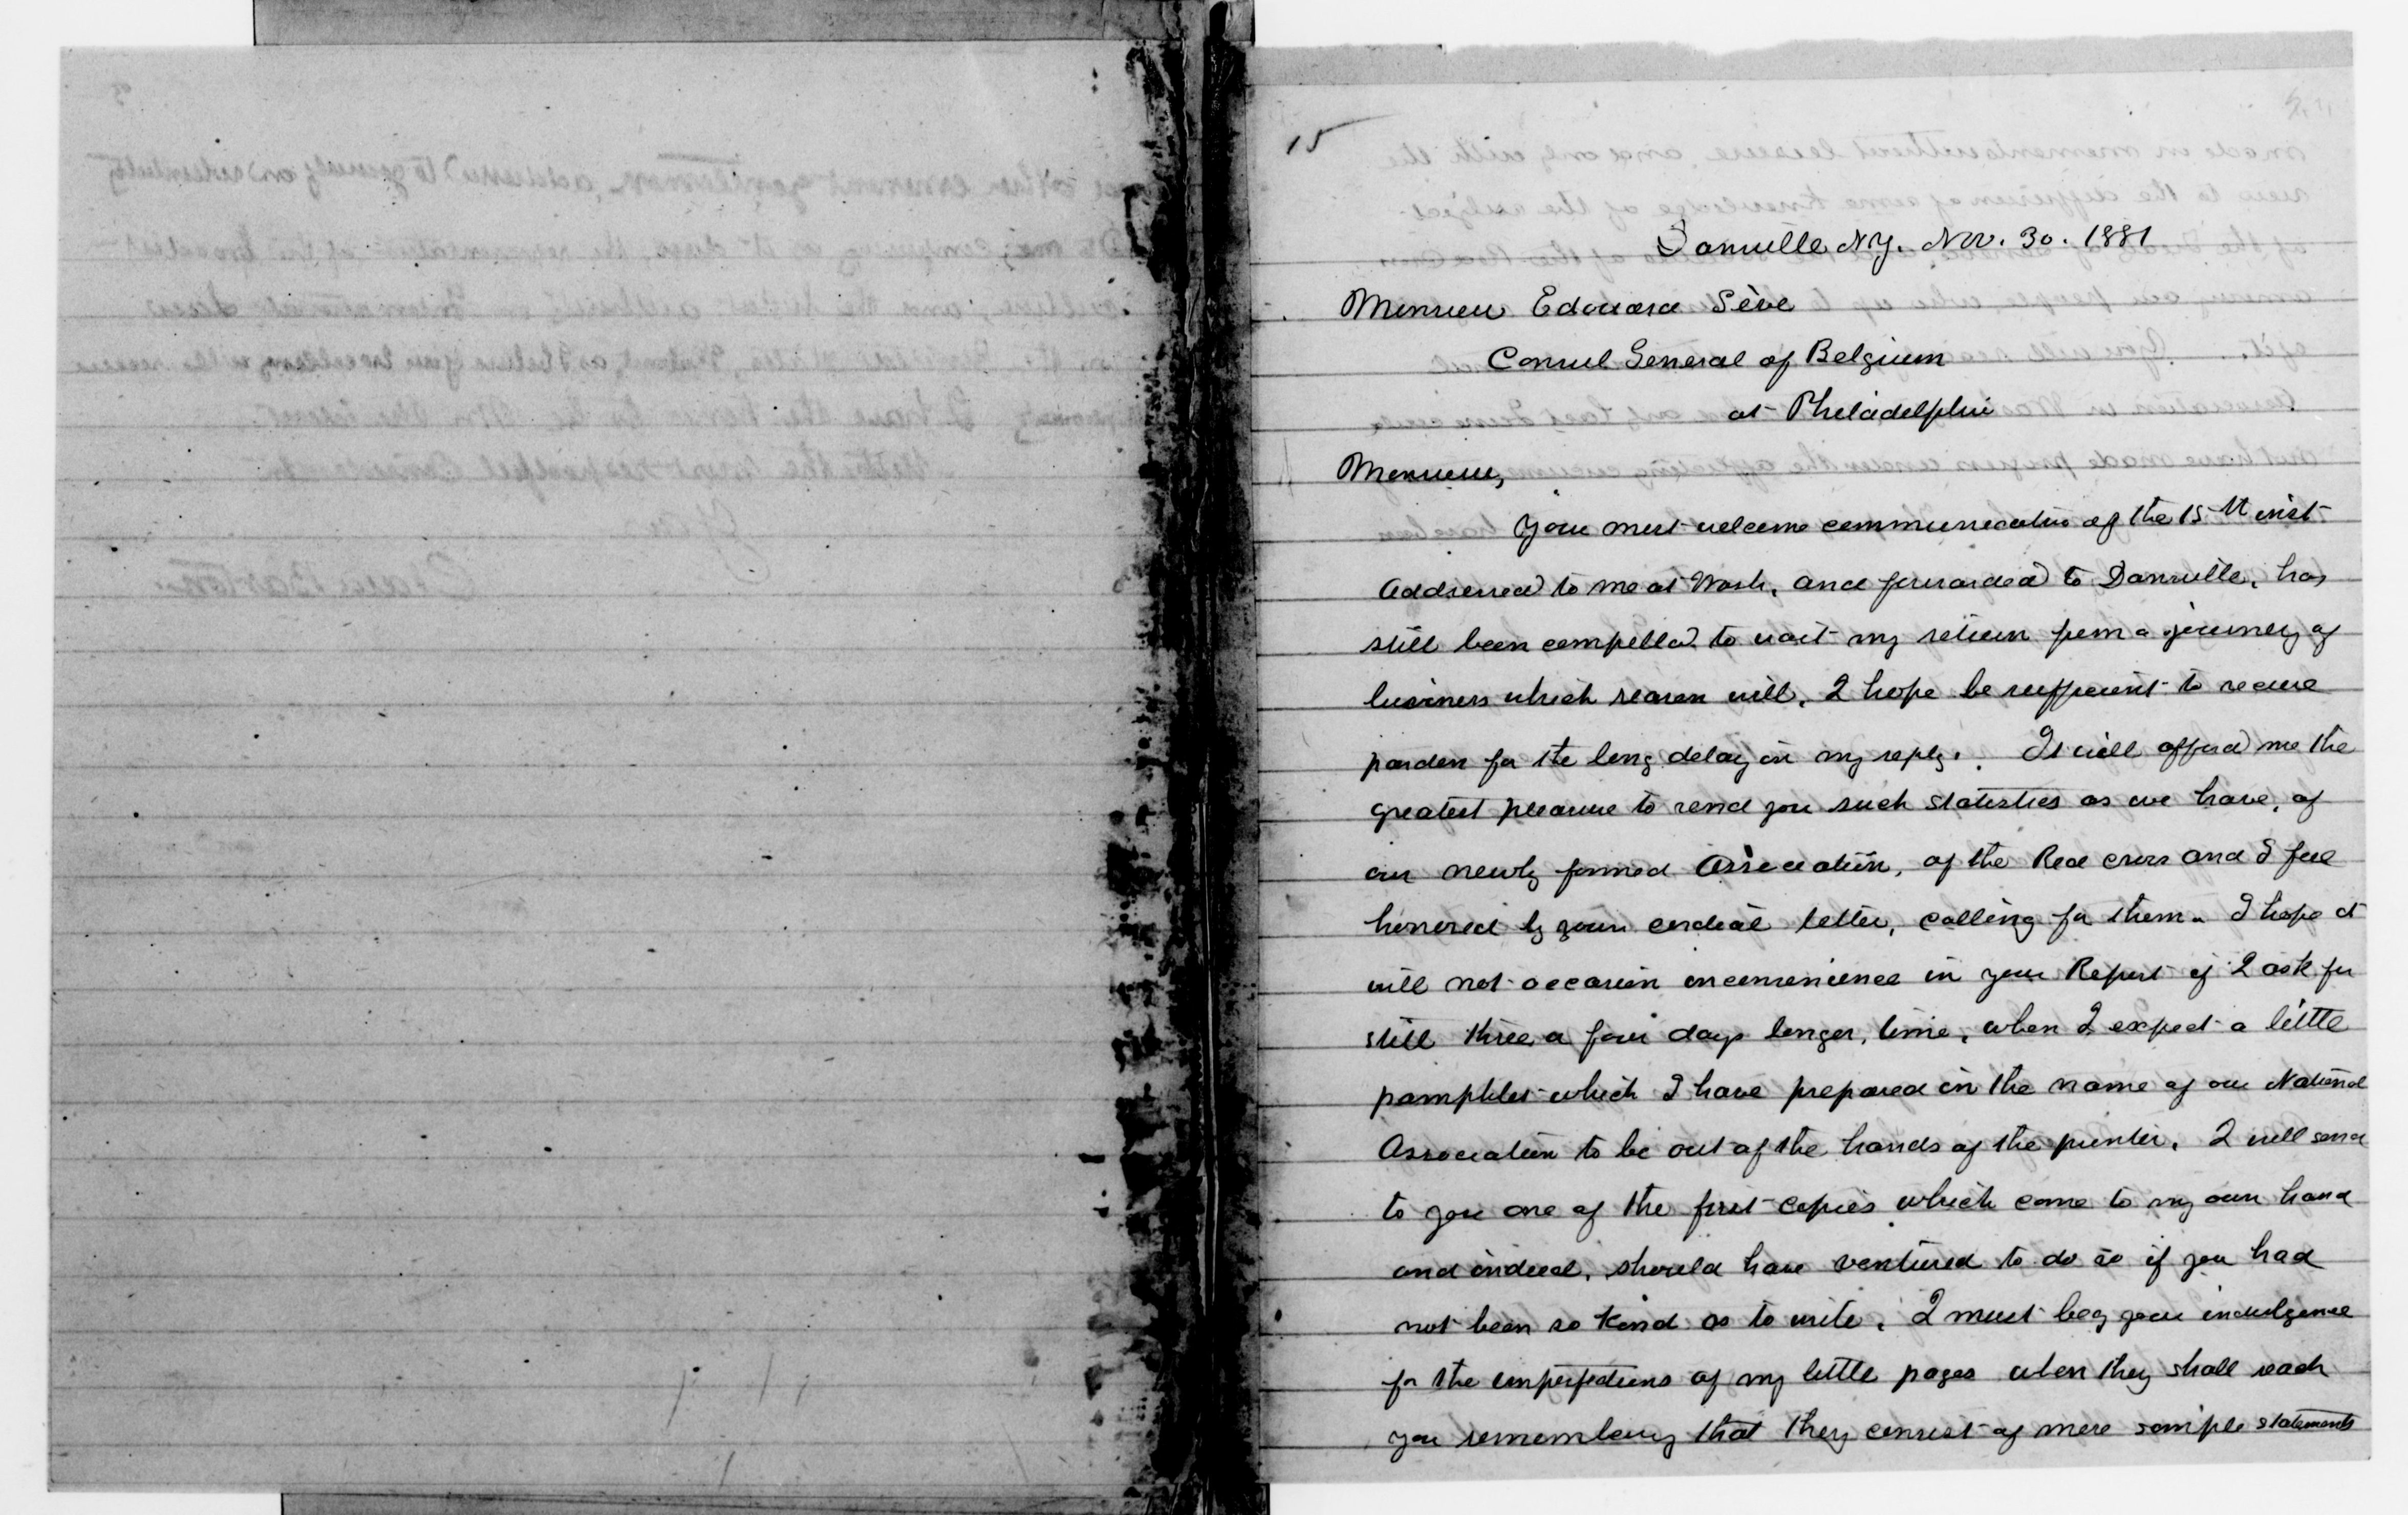 15
Dansville N.Y. Nov. 30. 1881
Monsieur Edouard Sève
Consul General of Belgium
at Philadelphia
Monsieur,
Your most welcome communication of the 15th inst
Addressed to me at Wash. and forwarded to Dansville, has
still been compelled to wait my return from a journey of
business which reason will, I hope be sufficient to secure
pardon for the long delay in my reply. It will afford me the
greatest pleasure to send you such statistics as we have, of
our newly formed Association, of the Red Cross and I feel
honored by your cordial letter, calling for them. I hope it
will not occasion inconvenience in your Report if I ask for
still three or four days longer, time, when I expect a little
pamphlet which I have prepared in the name of our National
Association to be out of the hands of the printer. I will send
to you one of the first copies which come to my own hand
and indeed, should have ventured to do so if you had
not been so kind as to write. I must beg your indulgence
for the imperfections of my little pages when they shall reach
you remembering that they consist of mere simple statements